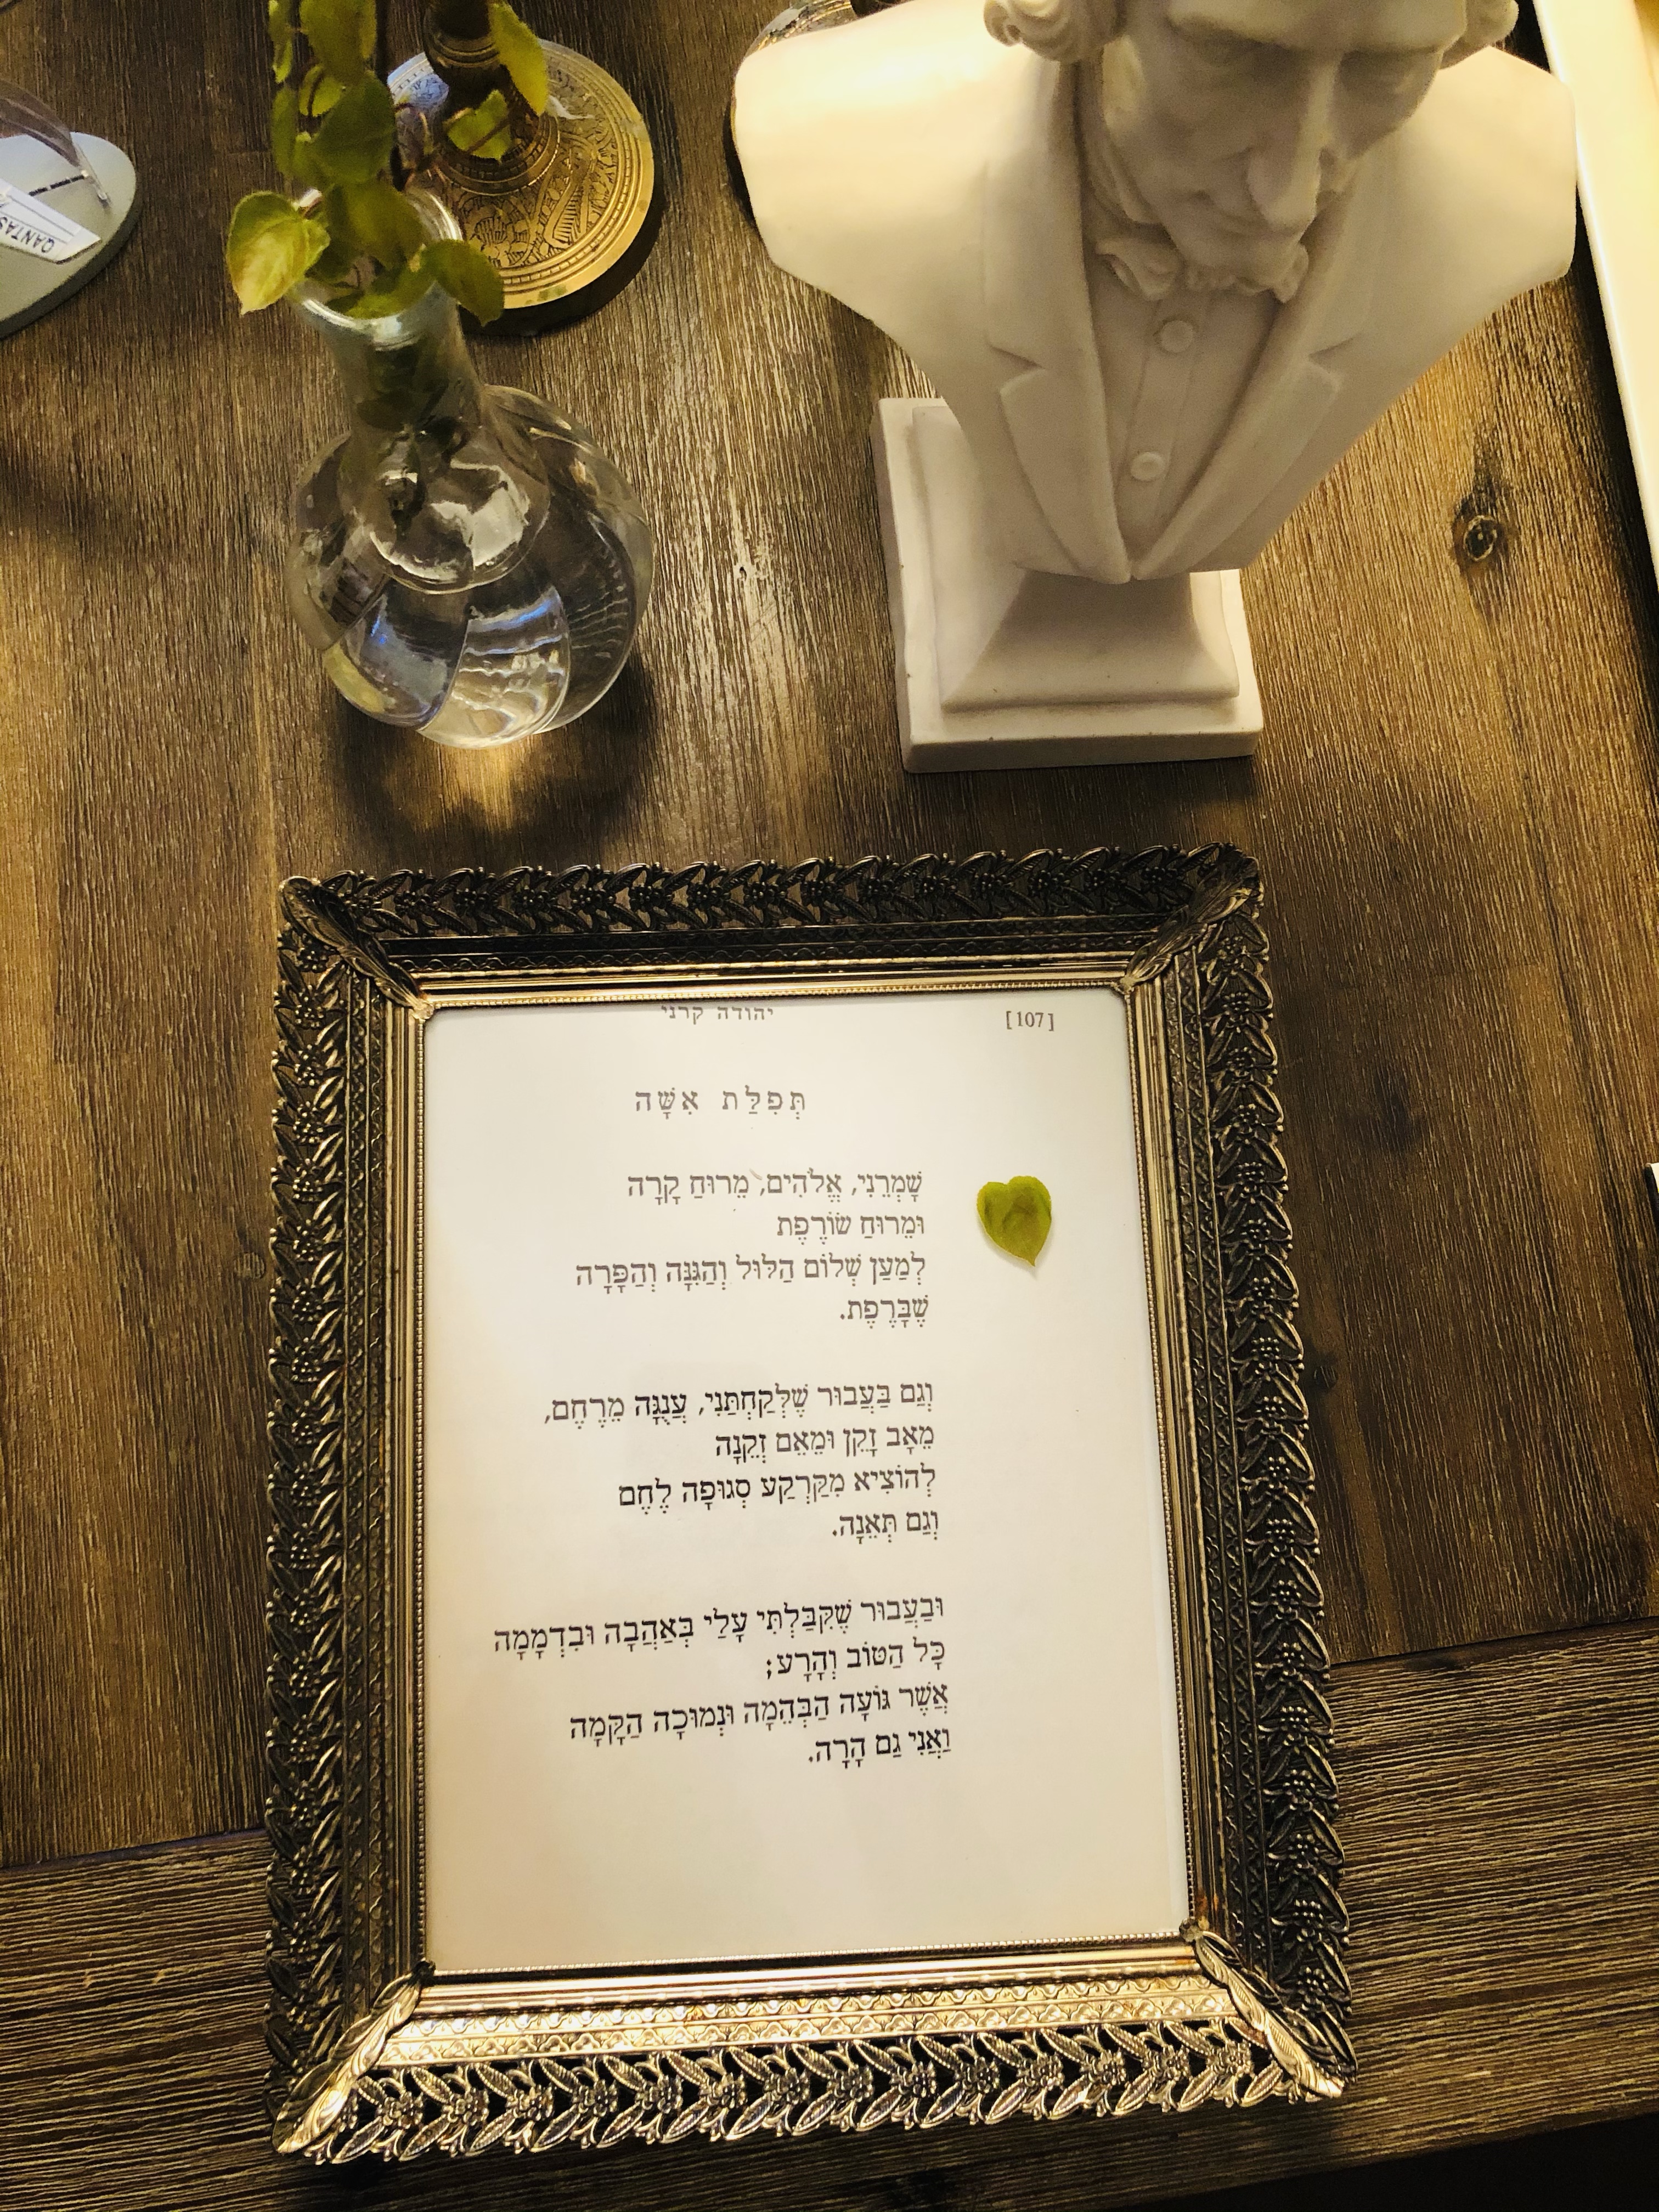 QANTAS
יהודה קרני
[107]
תְּפִלַּת אִשָּׁה
שָׁמְרֵנִי, אֱלֹהִים, מֵרוּחַ קָרָה
וּמֵרוּחַ שׂוֹרֶפֶת
לְמַעַן שְׁלוֹם הַלּוּל וְהַגִּנָּה וְהַפָּרָה
שֶׁבָּרֶפֶת.
וְגַם בַּעֲבוּר שֶׁלְּקַחְתַּנִי, עֲנֻגָּה מֵרֶחֶם,
מֵאָב זָקֵן וּמֵאֵם זְקֵנָה
לְהוֹצִיא מִקַּרְקַע סְגוּפָה לֶחֶם
וְגַם תְּאֵנָה.
וּבַעֲבוּר שֶׁקִּבַּלְתִּי עָלַי בְּאַהֲבָה וּבִדְמָמָה
כָּל הַטּוֹב וְהָרָע;
אֲשֶׁר גּוֹעָה הַבְּהֵמָה וּנְמוּכָה הַקָּמָה
וַאֲנִי גַם הָרָה.